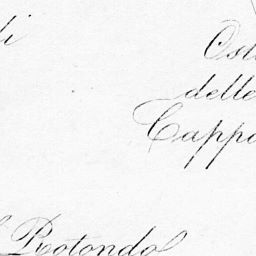 di
Ost
delle
Cappe
Rotondo